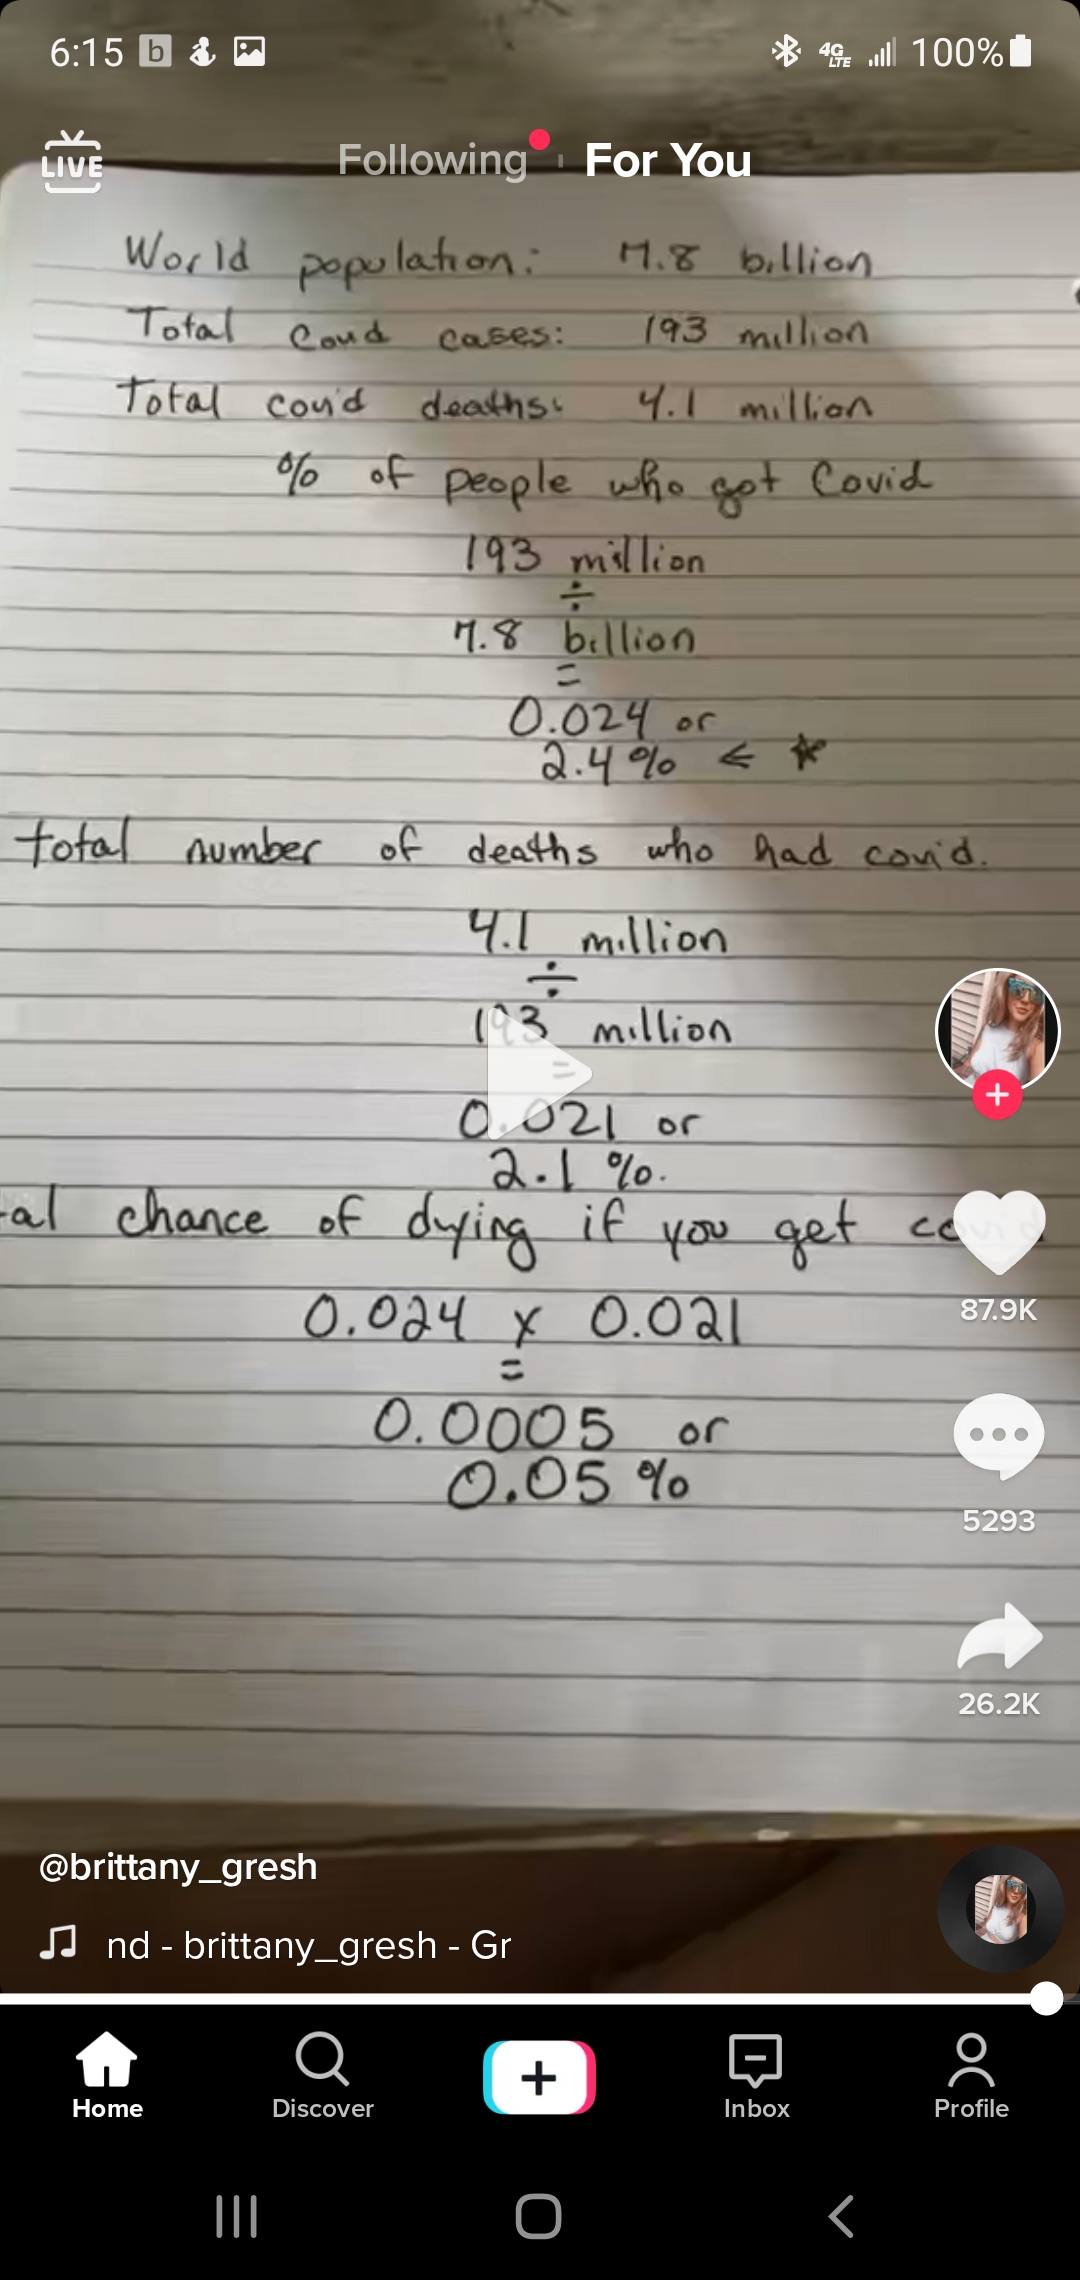 6:15 b 4G LTE 100%
LIVE Following For You
World population: 7.8 billion
Total Covid cases: 193 million
Total covid deaths: 4.1 million
% of people who got Covid
193 million
÷
7.8 billion
=
0.024 or
2.4% ← *
total number of deaths who had covid.
4.1 million
÷
193 million
=
0.021 or
2.1 %.
al chance of dying if you get covid
0.024 x 0.021
=
0.0005 or
0.05 %
87.9K
5293
26.2K
@brittany_gresh
nd - brittany_gresh - Gr
Home Discover Inbox Profile